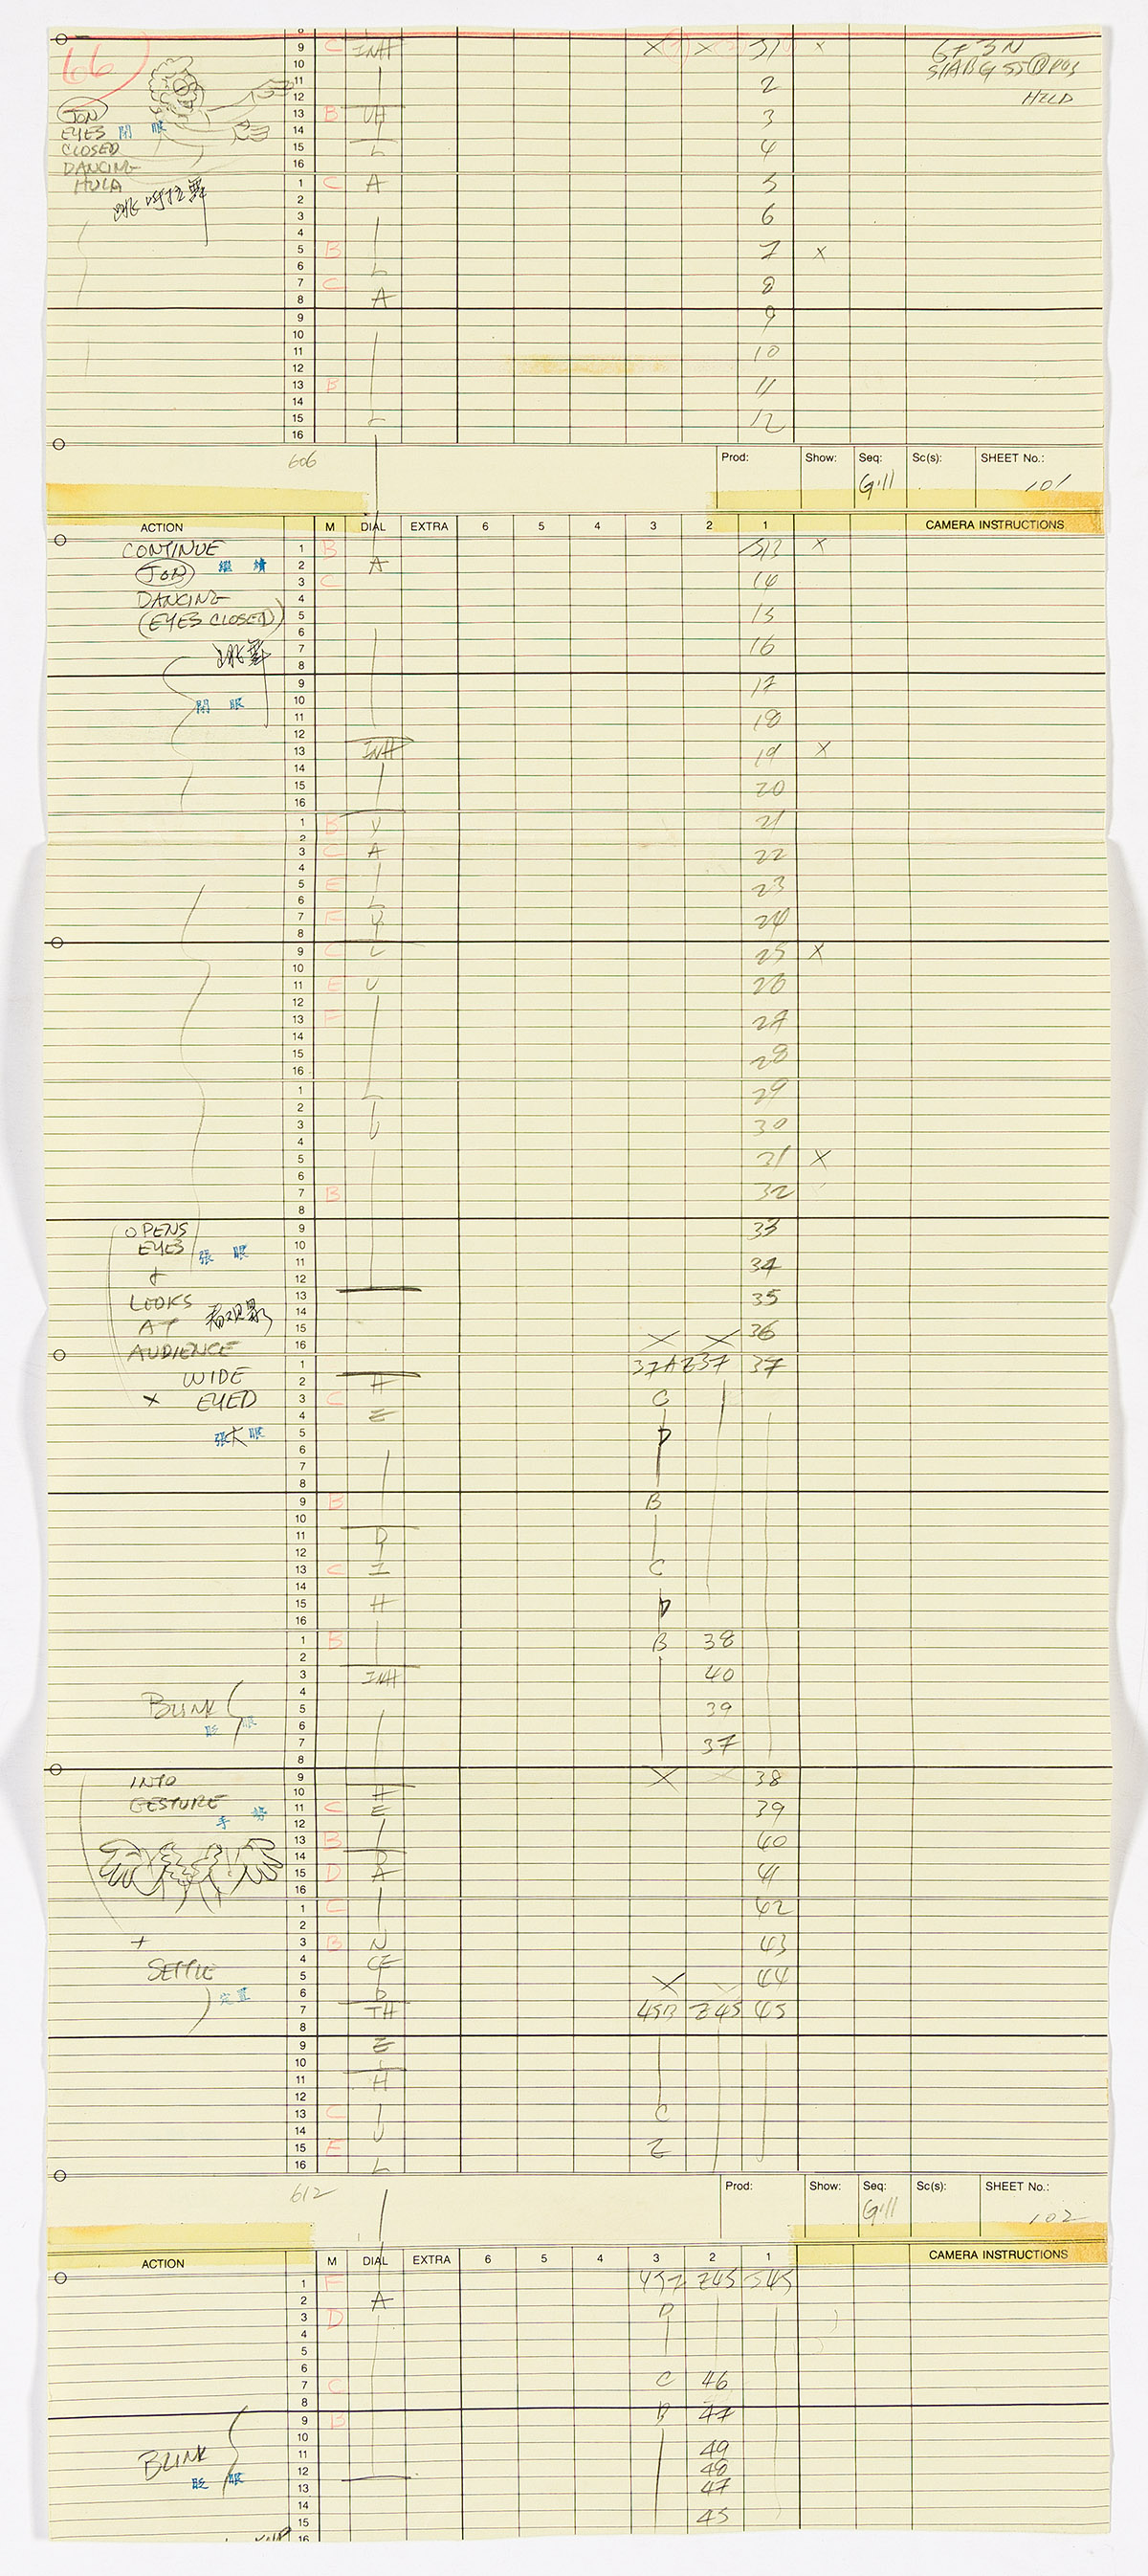 66
9 C INH X X 51 X G.F. 3 N
10
11 2
12 HELD
JON 13 B UH 3
EYES 閉 眼 14
CLOSED 15 L 4
DANCING 16
HULA 1 C A 5
跳 呼拉舞 2
3 6
4
5 B 7 X
6 L
7 C 8
8 A
9 9
10
11 10
12
13 B 11
14
15 L 12
16
606
Prod: Show: Seq: Gill Sc(s): SHEET No.: 101
ACTION M DIAL EXTRA 6 5 4 3 2 1 CAMERA INSTRUCTIONS
CONTINUE 1 B 513 X
JON 繼 續 2 A
3 C 14
DANCING 4
(EYES CLOSED) 5 15
6
跳舞 7 16
8
9 17
閉 眼 10
11 18
12
13 INH 19 X
14
15 20
16
1 B Y 21
2
3 C A 22
4
5 E 23
6 L
7 F 24
8
9 C L 25 X
10
11 E U 26
12
13 F 27
14
15 28
16
1 L 29
2
3 U 30
4
5 31 X
6
7 B 32
8
OPENS 9 33
EYES 張 眼 10
+ 11 34
12
LOOKS 13 35
AT 14
15 X X 36
AUDIENCE 16
1 37A Z37 37
WIDE 2 H
X EYED 3 C C
4 E
張大眼 5 D
6
7
8
9 B B
10
11 D
12
13 C I C
14
15 H D
16
1 B B 38
2
3 INH 40
4
BLINK 5 39
眨 眼 6
7 37
8
INTO 9 X X 38
10 H
GESTURE 11 C E 39
手 勢 12
13 B 40
14 D
15 D A 41
16
1 C 42
2
+ 3 B N 43
4 CE
SETTLE 5 X X 44
定 置 6 D
7 TH 45B Z45 45
8
9 E
10
11 H
12
13 C C
14 U
15 E Z
16 L
612
Prod: Show: Seq: Gill Sc(s): SHEET No.: 102
ACTION M DIAL EXTRA 6 5 4 3 2 1 CAMERA INSTRUCTIONS
1 F 45Z Z45 545
2 A
3 D D
4
5
6
7 C C 46
8
9 B B 47
10
BLINK 11 49
眨 眼 12 48
13 47
14
15 45
16